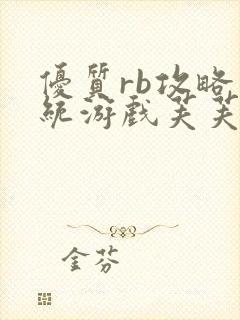 優質rb攻略系
統游戲芙芙
金芬